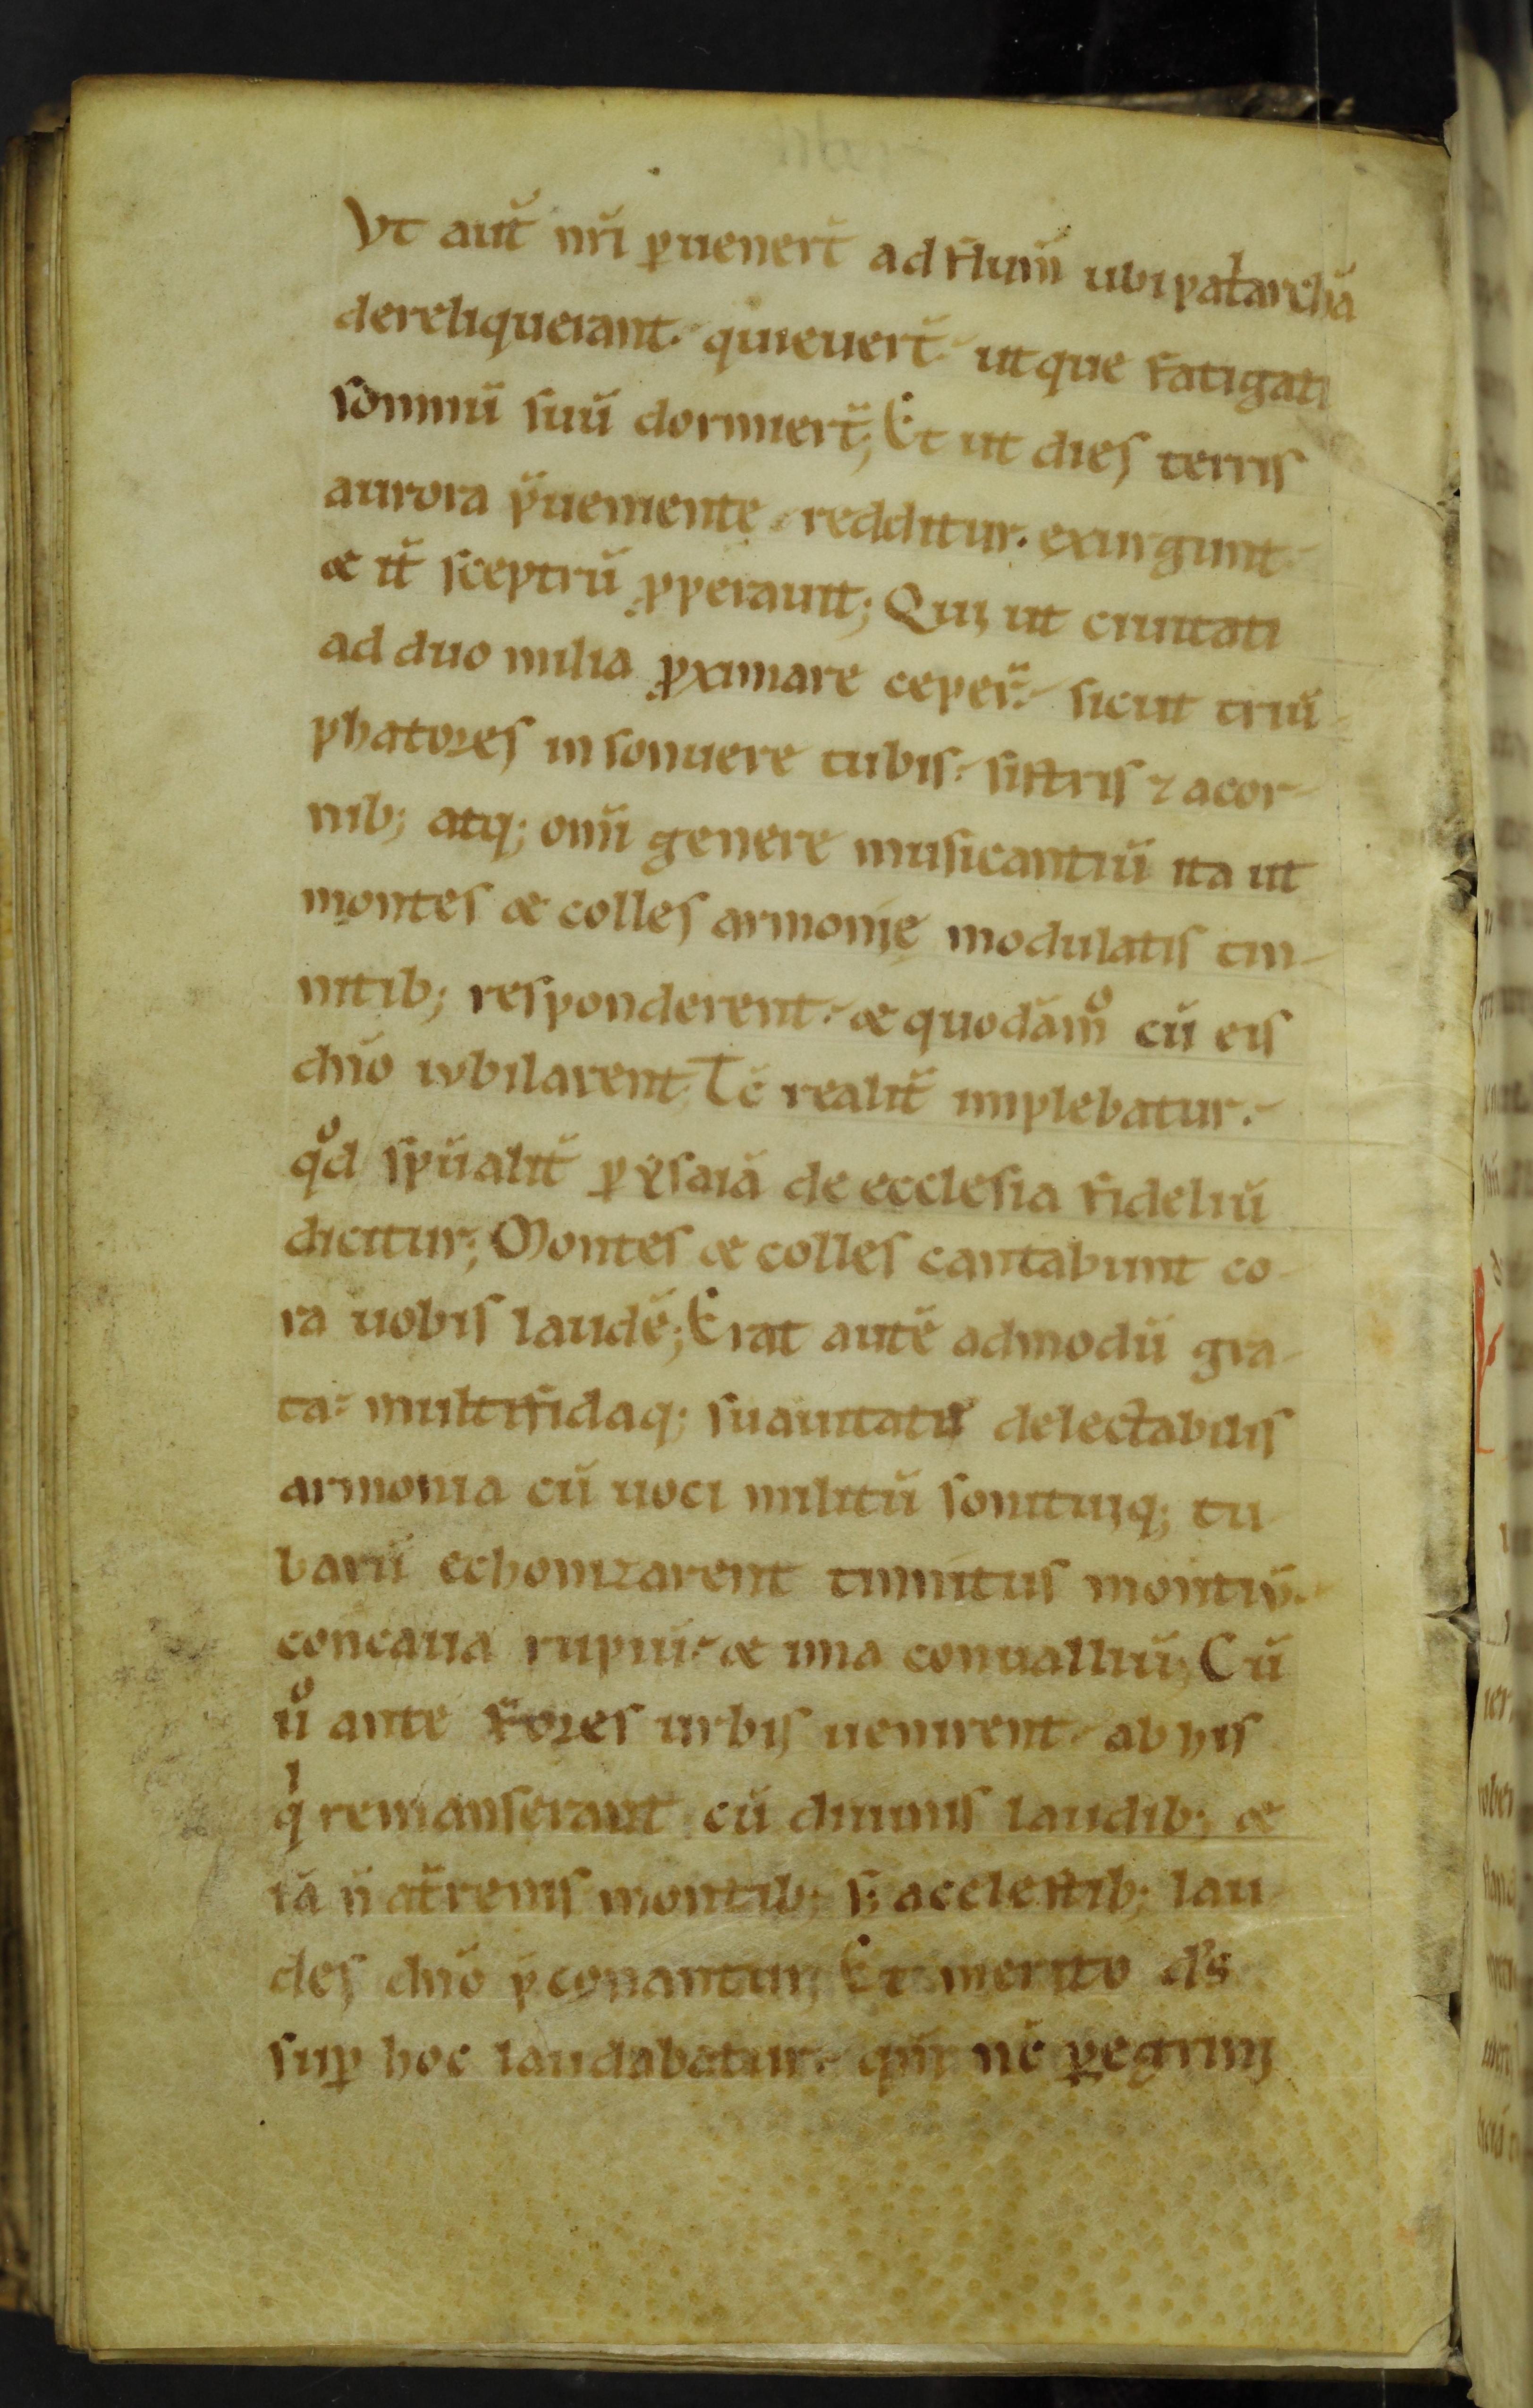 Vt aut̄ nr̄i ꝑueneꝛt̄ ad flum̄ ubi patͥarchā
dereliquerant. quieuert̄. utque fatigati
somnū suū dormiert̄; Et ut dies terris
aurora p̄ueniente redditur. exurgunt.
& it̄ sceptrū ꝓperauit; Qui ut ciuitati
ad duo milia ꝓximare ceper̄. sicut triū
phatores insonuere tubis. sistris ⁊ acor-
nib; atq; om̄i genere musicantiū ita ut
montes & colles armonię modulatis tin-
nitib; responderent. & quodām̊ cū eis
dn̄o iubilarent. Tc̄ realit̄ implebatur.
qͦd sp̄ualit̄ ꝑ ysaiā de ecclesia fideliū
dicitur; Montes & colles cantabunt co-
rā uobis laudē; Erat autē admodū gra-
ta. multifidaq; suauitate delectabilis
armonia cū uoci militū sonituiq; tu
barū echonizarent tinnitus montiū.
concaua rupiū. & ima conualliū; Cū
uͦ ante fores urbis uenirent. ab his
qͥ remanserant cū diuinis laudib; &
iā n̄ a t̄renis montib; s; a celestib; lau
des dn̄o p̄conantur; Et merito ds̄
suꝑ hoc laudabatur. qm̄ nc̄ ꝑegrinis